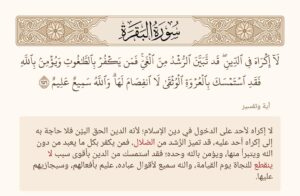 سُورَةُ البَقَرَةِ
لَآ إِكۡرَاهَ فِي ٱلدِّينِۖ قَد تَّبَيَّنَ ٱلرُّشۡدُ مِنَ ٱلۡغَيِّۚ فَمَن يَكۡفُرۡ بِٱلطَّٰغُوتِ وَيُؤۡمِنۢ بِٱللَّهِ
فَقَدِ ٱسۡتَمۡسَكَ بِٱلۡعُرۡوَةِ ٱلۡوُثۡقَىٰ لَا ٱنفِصَامَ لَهَاۗ وَٱللَّهُ سَمِيعٌ عَلِيمٌ ٢٥٦
آية وتفسير
لا إكراه لأحد على الدخول في دين الإسلام؛ لأنه الدين الحق البيّن فلا حاجة به
إلى إكراه أحد عليه، قد تميز الرشد من الضلال، فمن يكفر بكل ما يعبد من دون
الله ويتبرأ منها، ويؤمن بالله وحده؛ فقد استمسك من الدين بأقوى سبب لا
ينقطع للنجاة يوم القيامة، والله سميع لأقوال عباده، عليم بأفعالهم، وسيجازيهم
عليها.